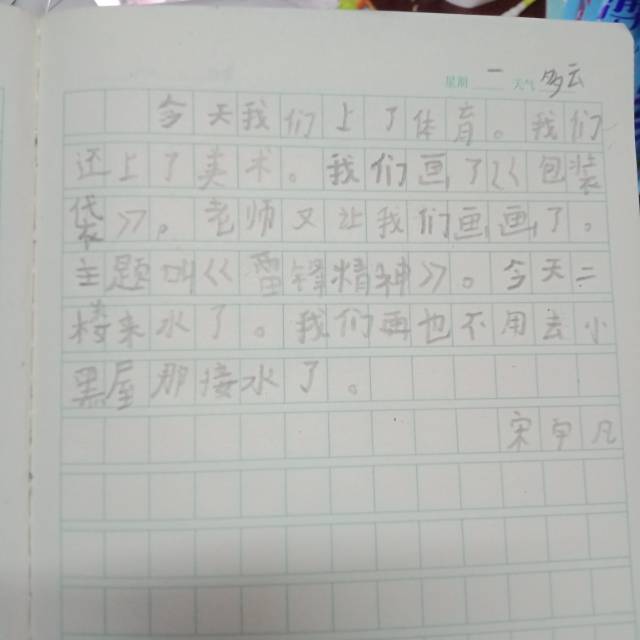 星期 一 天气 多云
今天我们上了体育。我们
还上了美术。我们画了《包装
袋》。老师又让我们画画了。
主题叫《雷锋精神》。今天二
楼来水了。我们再也不用去小
黑屋那接水了。
宋宇凡